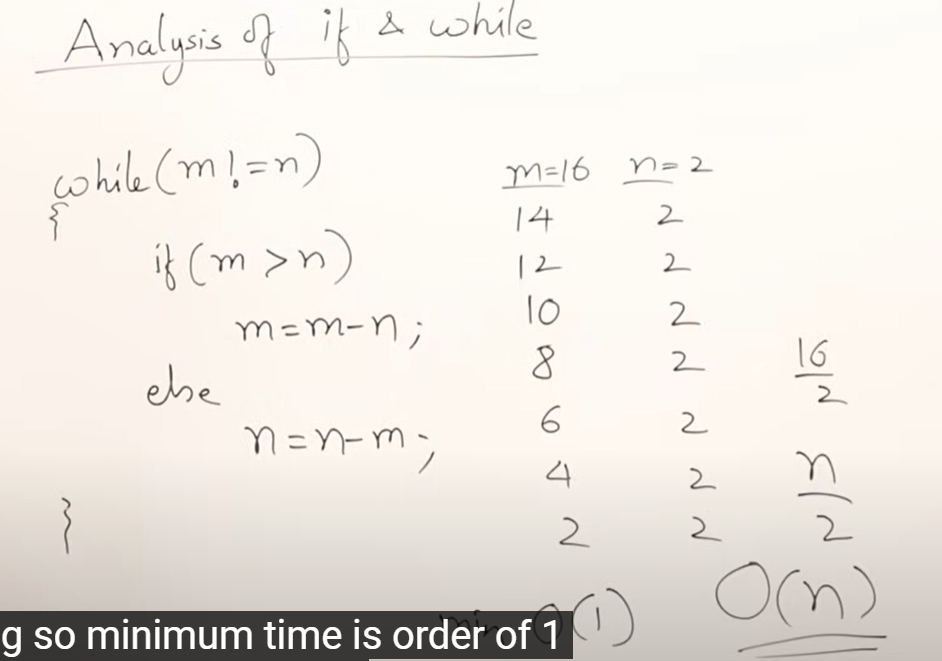 Analysis of if & while
while(m!=n)
{
if(m>n)
m=m-n;
else
n=n-m;
}
m=16 n=2
14 2
12 2
10 2
8 2
6 2
4 2
2 2
16
2
n
2
min O(1) O(n)
g so minimum time is order of 1